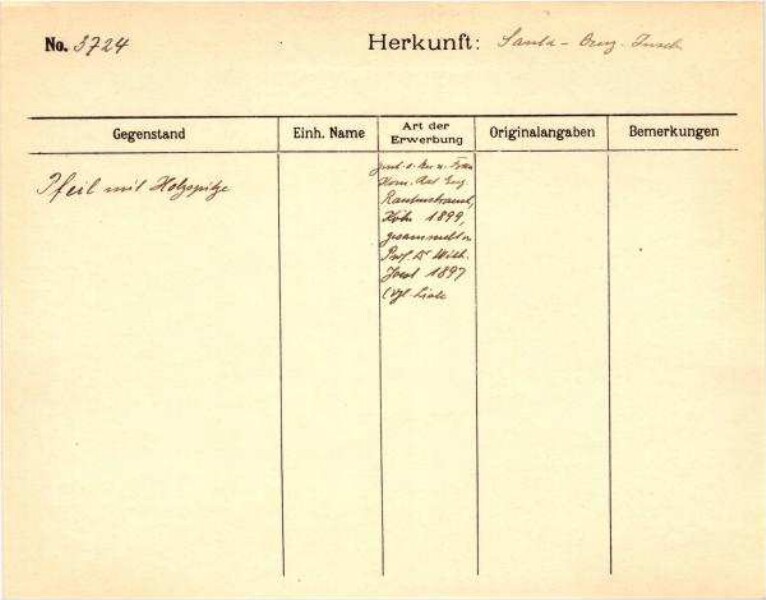 No. 3724
Herkunft: Santa-Cruz-Inseln
Gegenstand
Einh. Name
Art der
Erwerbung
Originalangaben
Bemerkungen
Pfeil mit Holzspitze
u. Frau
Kom. Rat Eug.
Rautenstrauch,
Köln 1899,
gesammelt v.
Prof. Dr Wilh.
Joest 1897
(vgl. Liste